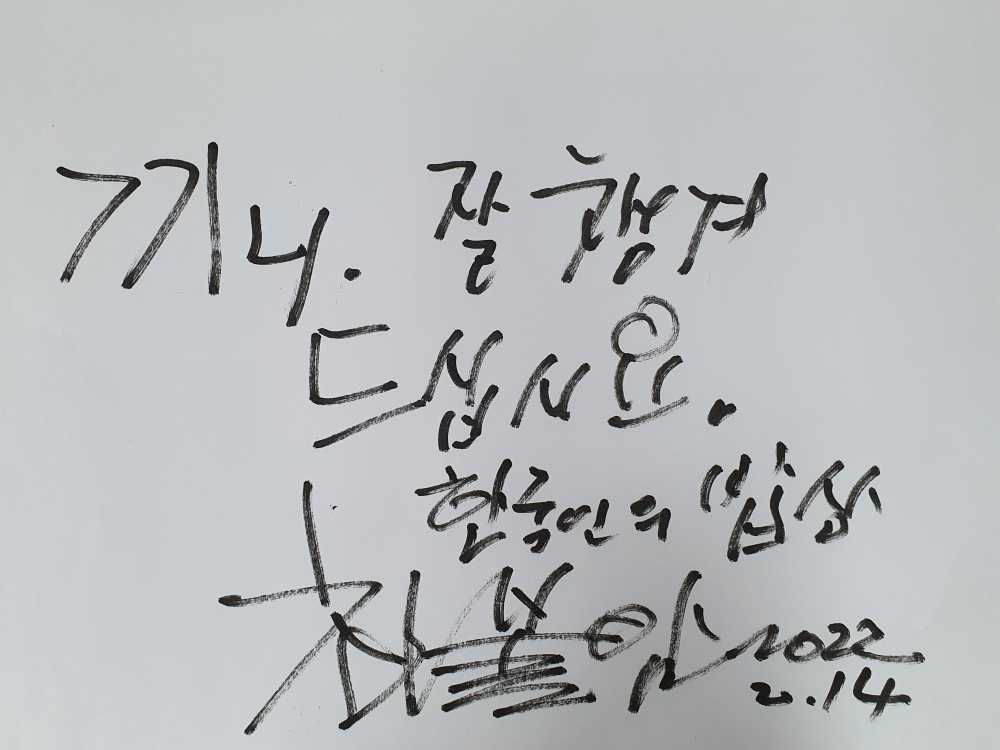 끼니. 잘 챙겨
드십시요.
한국인의 밥상
최불암 2022
2.14